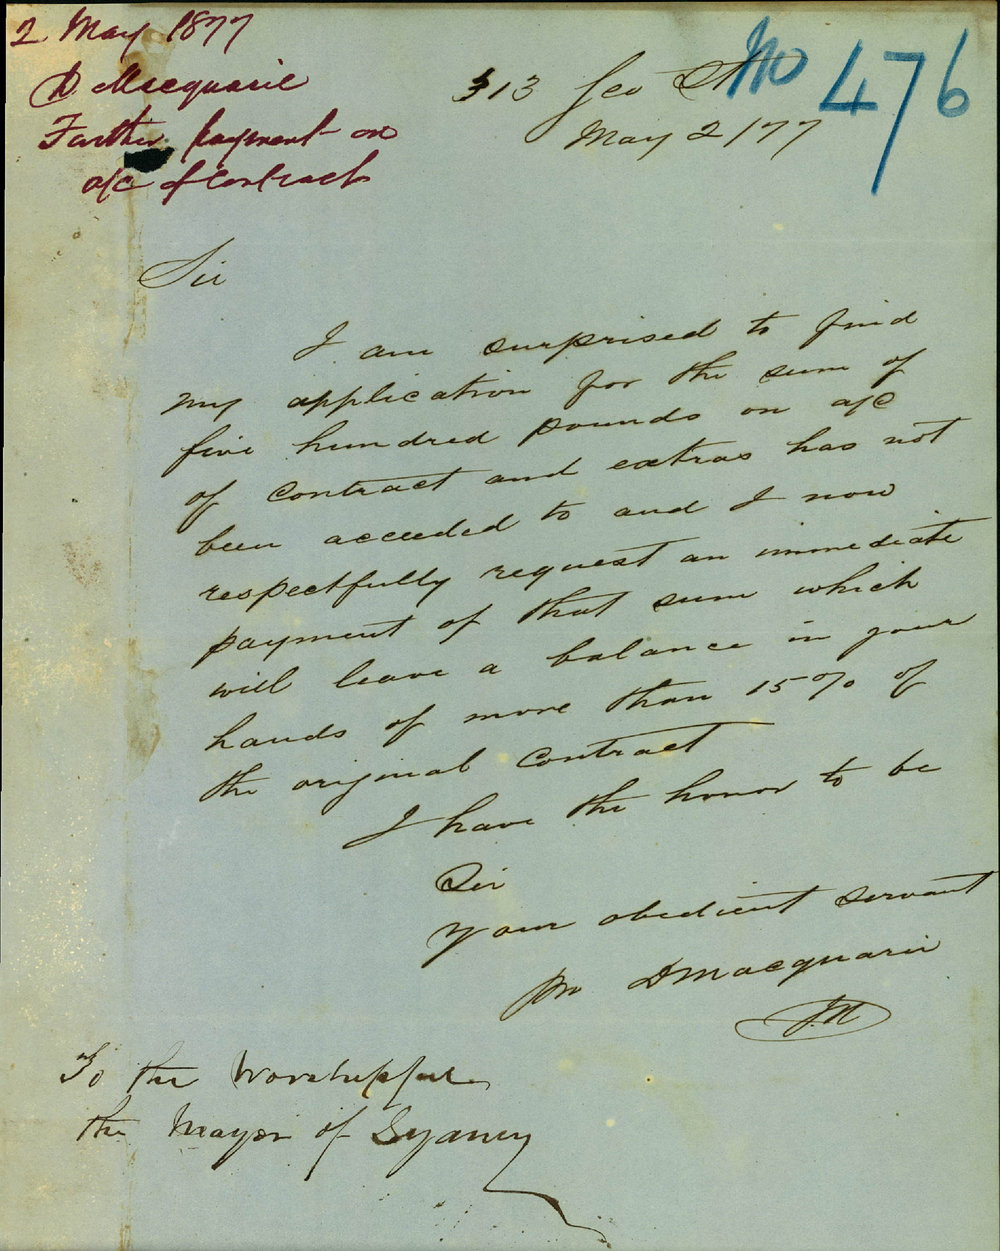 2 May 1877
D Macquarie
Further payment on
a/c of Contract
No 476
313 Geo St
May 2/77
Sir
I am surprised to find
my application for the sum of
five hundred pounds on a/c
of Contract and extras has not
been acceeded to and I now
respectfully request an immediate
payment of that sum which
will leave a balance in your
hands of more than 15% of
the original Contract
I have the honor to be
Sir
Your obedient servant
pr D Macquarie
J.M
To the Worshipful
the Mayor of Sydney